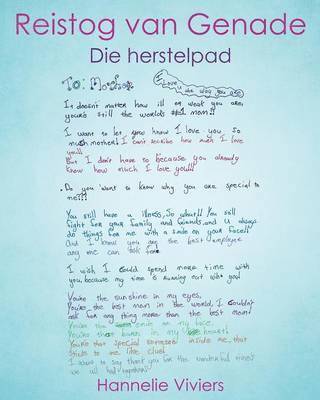 Reistog van Genade
Die herstelpad
To: Mother
I love u
the way you are
It doesn't matter how ill or weak you are,
you're still the worlds #1 mom!!
I want to let you know I love you so
much mother! I can't scribe how much I love
you!!
But I don't have to because you already
know how much I love you!!!
Do you want to know why you are special to
me???
You still have a illness, So what!! You still
fight for your family and friends and u always
do things for me with a smile on your face!!
And I know you are the best employee
any one can look for.
I wish I could spend more time with
you, because my time is running out with you!
You're the sunshine in my eyes,
You're the best mom in the world, I couldn't
ask for any thing more than the best mom!
You're the smile on my face,
You're the burn in my heart!
You're that special someone inside me, that
stick to me like glue!
I want to say thank you for the wonderful times
we all had together!
Hannelie Viviers